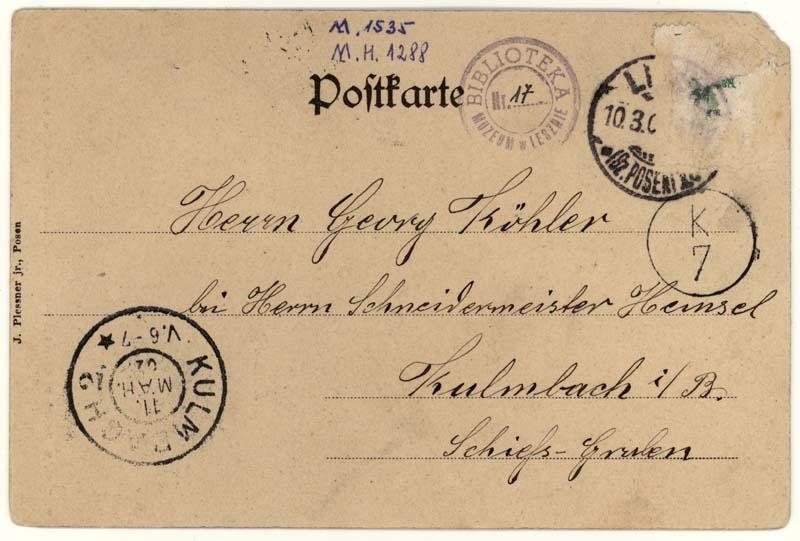 M. 1535
M.H. 1288
Postkarte
BIBLIOTEKA
Nr. 17
MUZEUM w LESZNIE
10.3.
(Bz. POSEN)
Herrn Georg Köhler
K
7
bei Herrn Schneidermeister Heinsel
Kulmbach i/B.
Schieſs-Graben
J. Plessner jr., Posen
KULMBACH 2
11.
MAR.
02
V. 6-7